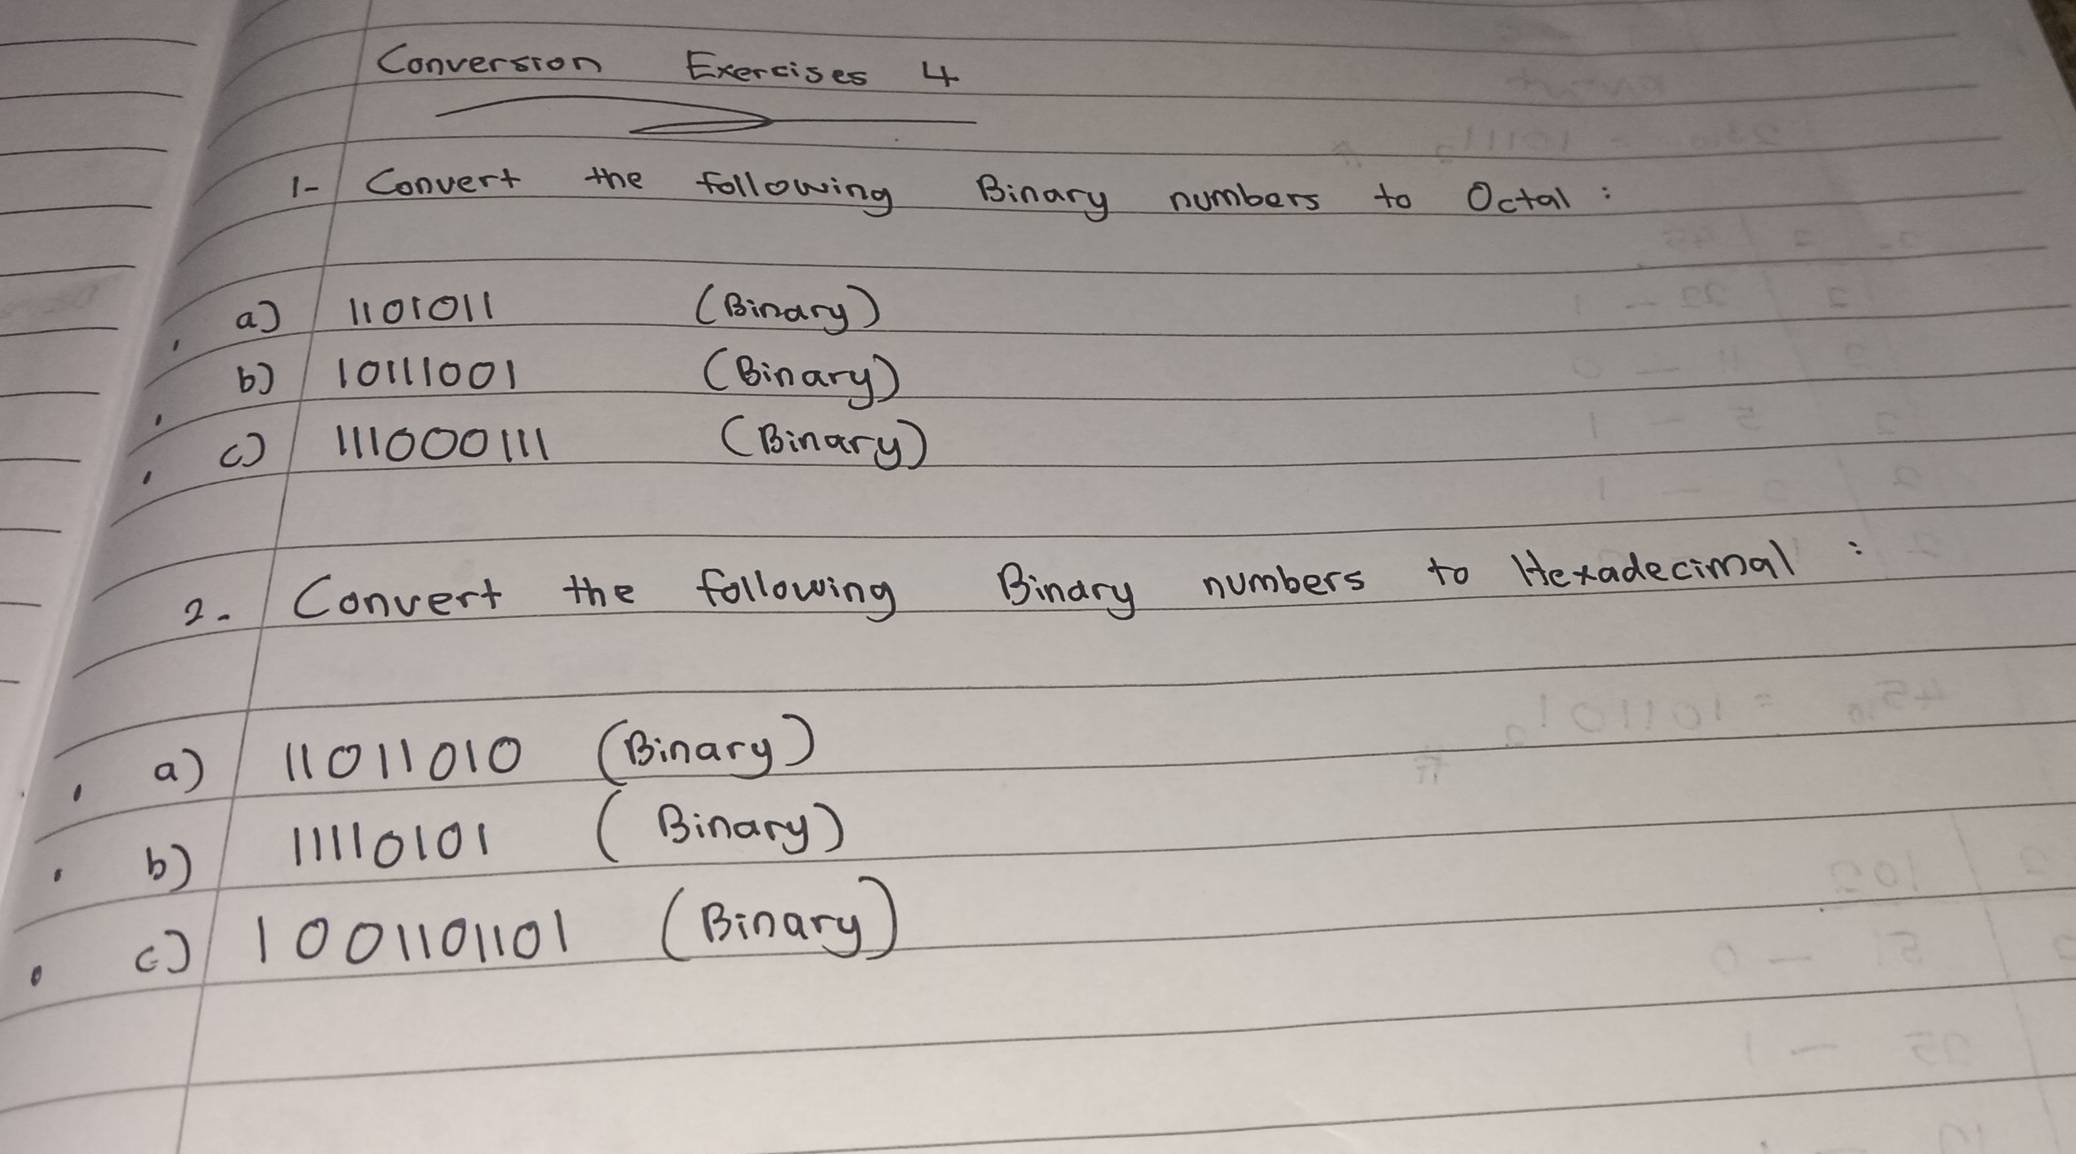 Conversion Exercises 4
1- Convert the following Binary numbers to Octal :
a) 1101011 (Binary)
b) 10111001 (Binary)
c) 111000111 (Binary)
2. Convert the following Binary numbers to Hexadecimal :
a) 11011010 (Binary)
b) 11110101 (Binary)
c) 1001101101 (Binary)